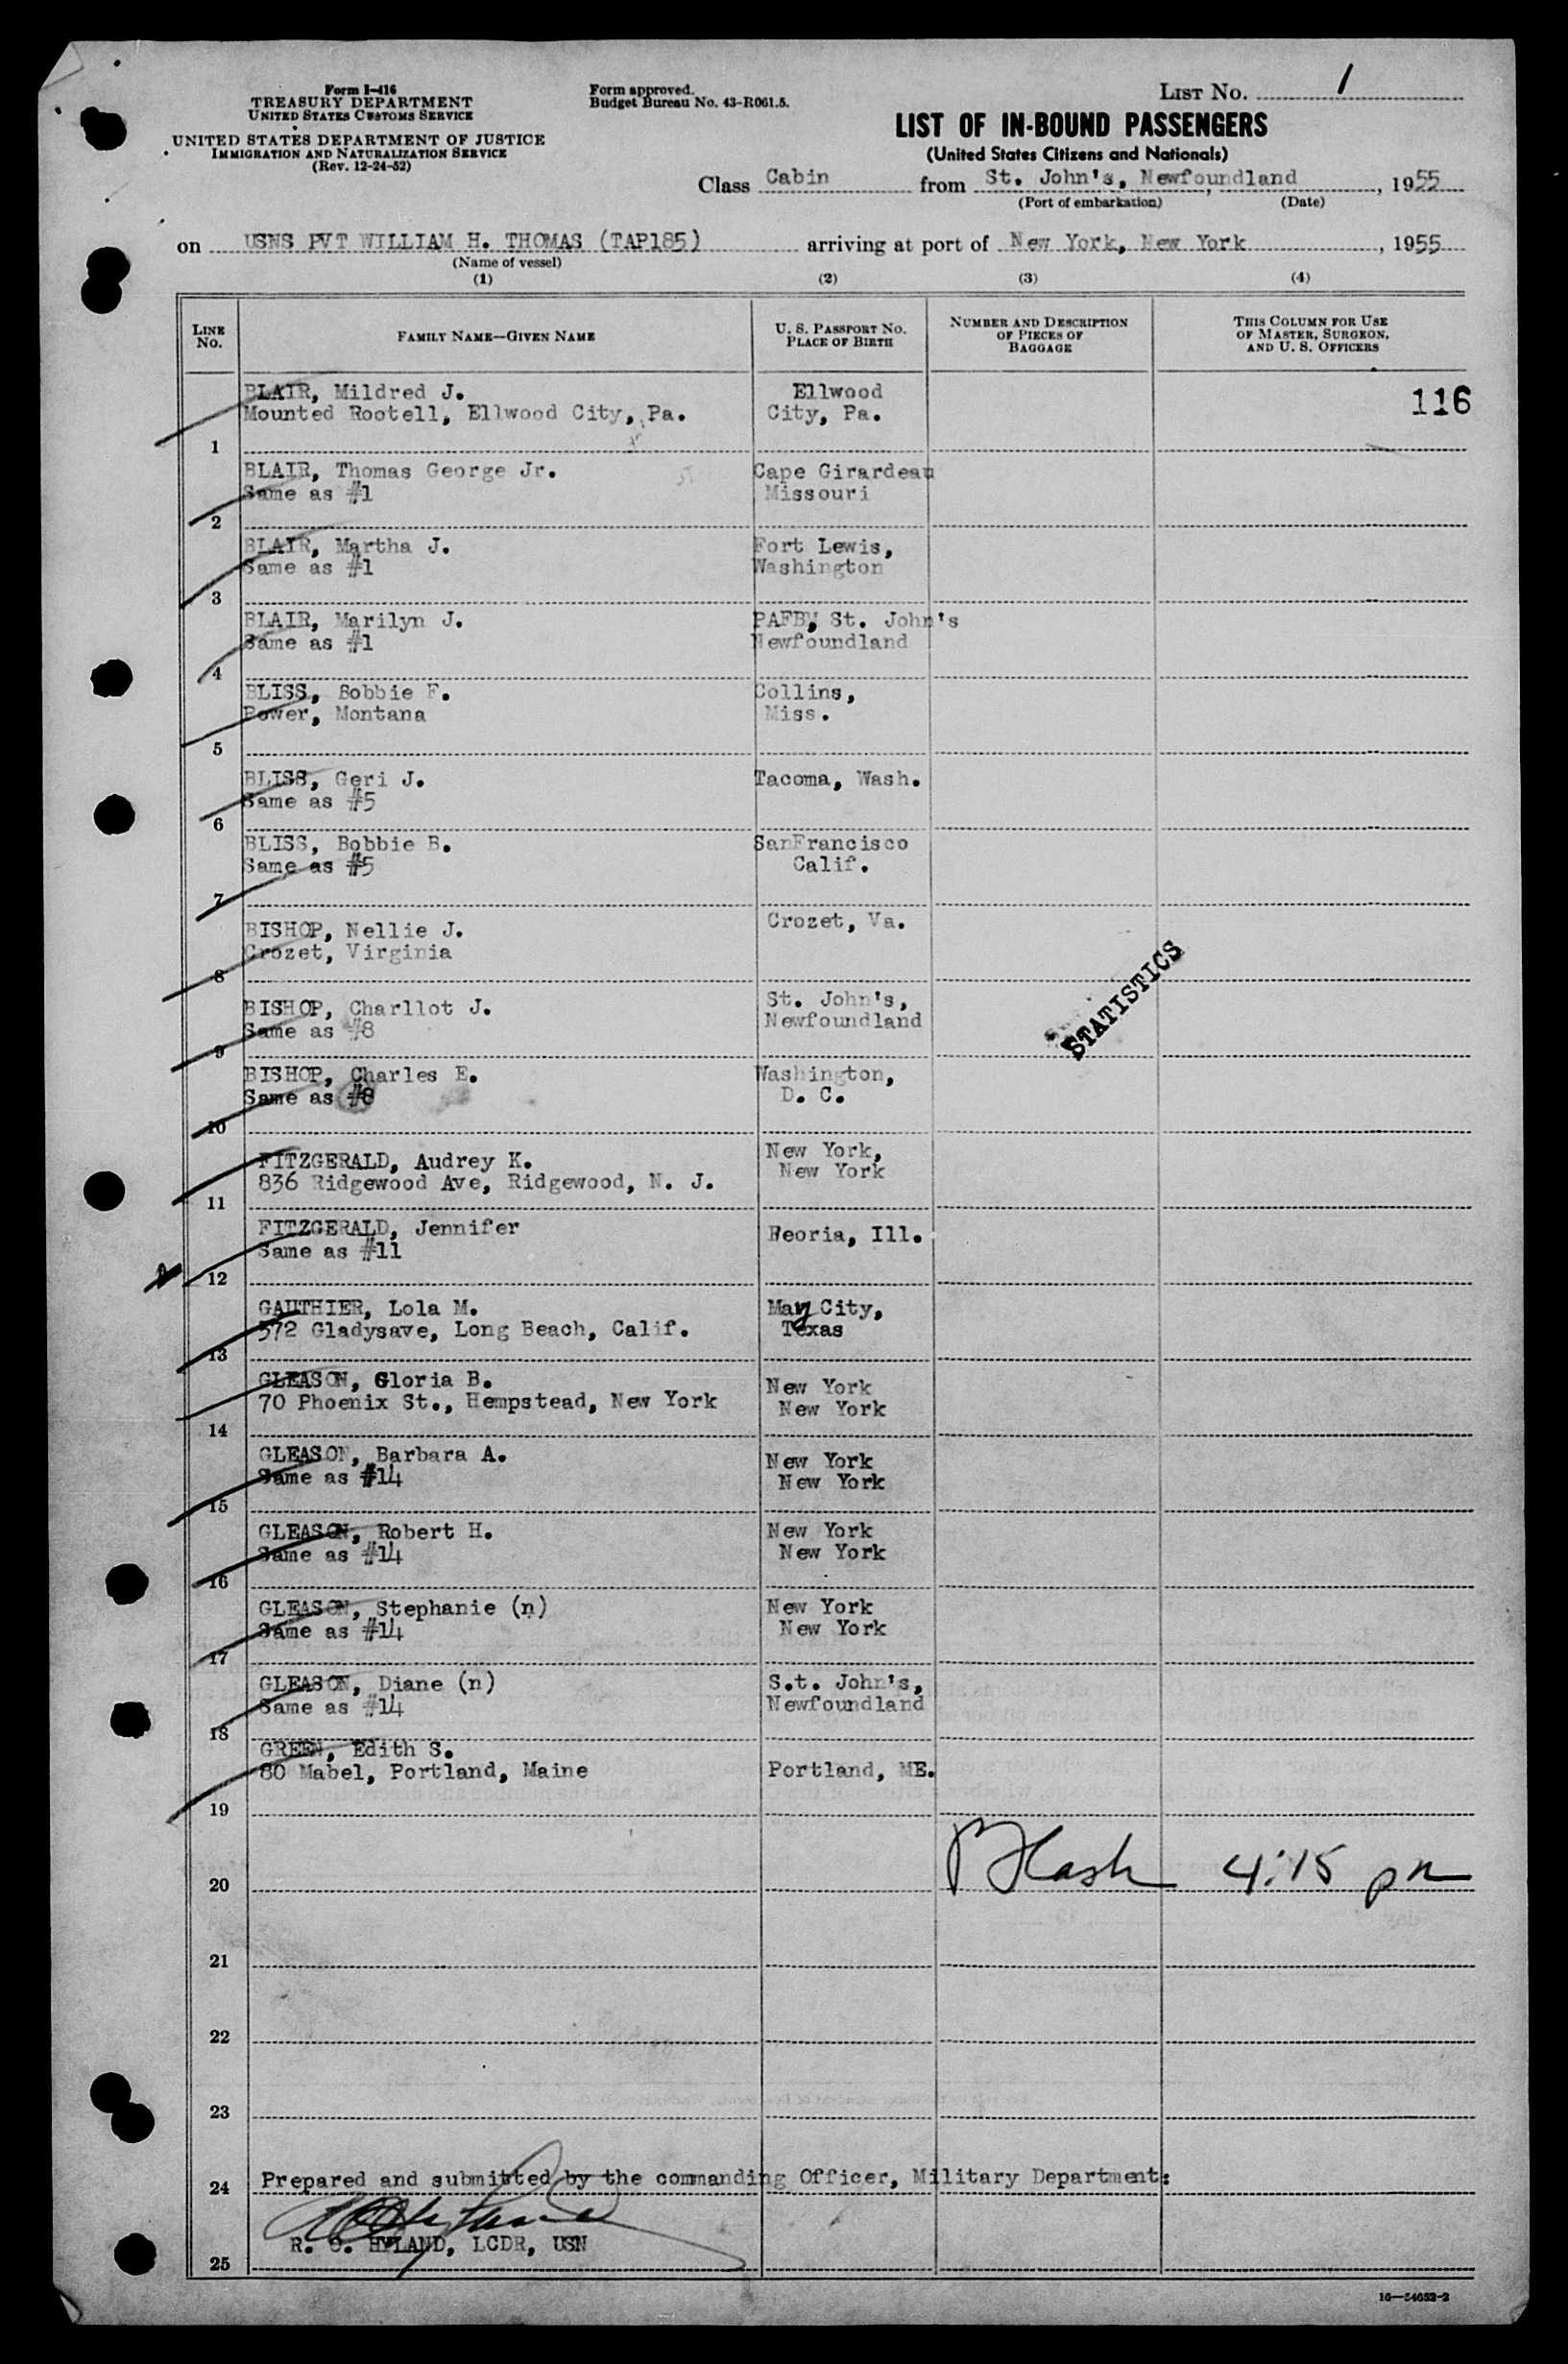 Form I-416
TREASURY DEPARTMENT
UNITED STATES CUSTOMS SERVICE
UNITED STATES DEPARTMENT OF JUSTICE
IMMIGRATION AND NATURALIZATION SERVICE
(Rev. 12-24-52)
Form approved.
Budget Bureau No. 43-R061.5.
LIST No. 1
LIST OF IN-BOUND PASSENGERS
(United States Citizens and Nationals)
Class Cabin from St. John's, Newfoundland, 1955
(Port of embarkation) (Date)
on USNS PVT WILLIAM H. THOMAS (TAP185) arriving at port of New York, New York, 1955
(Name of vessel)
(1) (2) (3) (4)
LINE No.
FAMILY NAME—GIVEN NAME
U. S. PASSPORT No.
PLACE OF BIRTH
NUMBER AND DESCRIPTION
OF PIECES OF
BAGGAGE
THIS COLUMN FOR USE
OF MASTER, SURGEON,
AND U. S. OFFICERS
116
BLAIR, Mildred J. Ellwood
Mounted Rootell, Ellwood City, Pa. City, Pa.
1
BLAIR, Thomas George Jr. Cape Girardeau
Same as #1 Missouri
2
BLAIR, Martha J. Fort Lewis,
Same as #1 Washington
3
BLAIR, Marilyn J. PAFB, St. John's
Same as #1 Newfoundland
4
BLISS, Bobbie F. Collins,
Power, Montana Miss.
5
BLISS, Geri J. Tacoma, Wash.
Same as #5
6
BLISS, Bobbie B. SanFrancisco
Same as #5 Calif.
7
BISHOP, Nellie J. Crozet, Va.
Crozet, Virginia
8
BISHOP, Charllot J. St. John's,
Same as #8 Newfoundland
9
STATISTICS
BISHOP, Charles E. Washington,
Same as #8 D. C.
10
FITZGERALD, Audrey K. New York,
836 Ridgewood Ave, Ridgewood, N. J. New York
11
FITZGERALD, Jennifer Peoria, Ill.
Same as #11
12
GAUTHIER, Lola M. May City,
372 Gladysave, Long Beach, Calif. Texas
13
GLEASON, Gloria B. New York
70 Phoenix St., Hempstead, New York New York
14
GLEASON, Barbara A. New York
Same as #14 New York
15
GLEASON, Robert H. New York
Same as #14 New York
16
GLEASON, Stephanie (n) New York
Same as #14 New York
17
GLEASON, Diane (n) S.t. John's,
Same as #14 Newfoundland
18
GREEN, Edith S.
80 Mabel, Portland, Maine Portland, ME.
19
4:15 pm
20
21
22
23
Prepared and submitted by the commanding Officer, Military Department:
24
R. O. HYLAND, LCDR, USN
25
16—54652-2